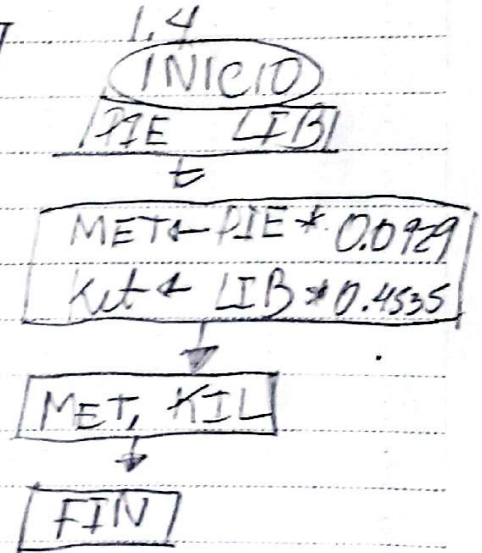 1.4
INICIO
PIE LIB
MET ← PIE * 0.0929
KIL ← LIB * 0.4535
MET, KIL
FIN